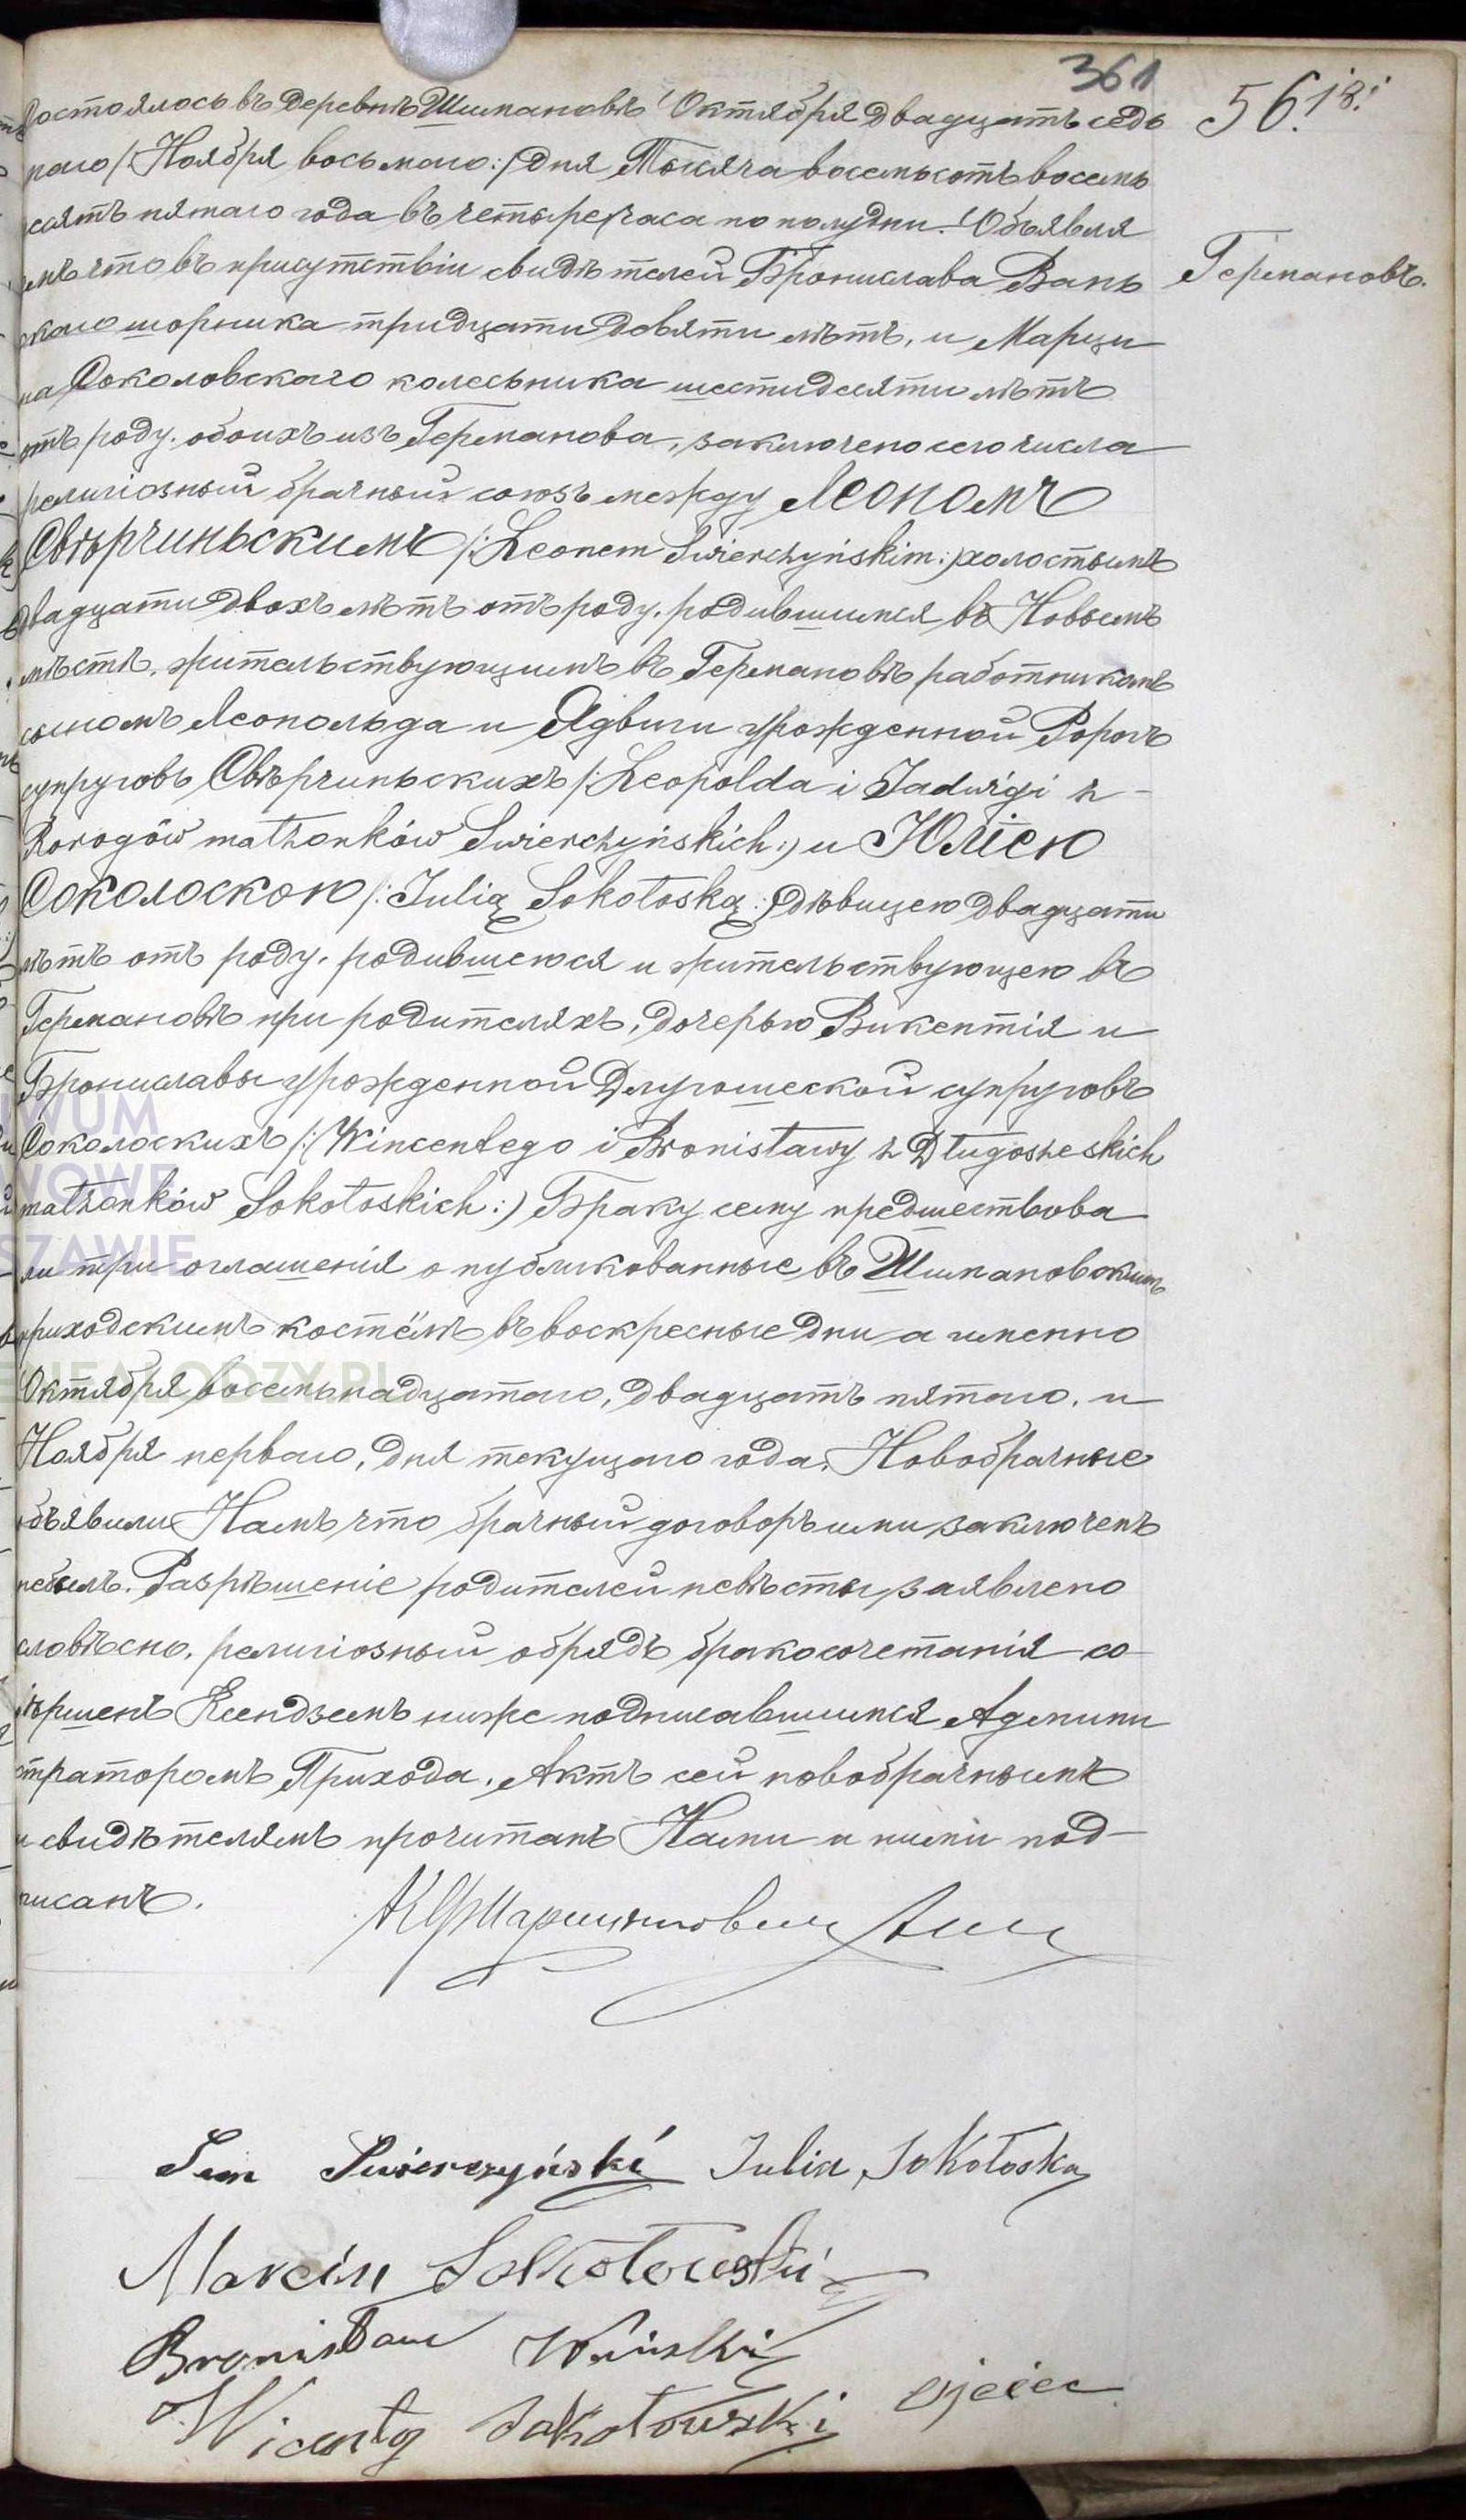 361
561/8/
Германовъ.
Состоялось въ деревнѣ Шимановѣ Октября двадцать седь
маго /:Ноября восьмаго:/ дня Тысяча восемьсотъ восемь
десятъ пятаго года въ четыре часа по полудни. Объявля
емъ что въ присутствіи свидѣтелей Бронислава Вань
скаго шорника тридцати девяти лѣтъ, и Марци
на Соколовскаго колесьника шестидесяти лѣтъ
отъ роду, обоихъ изъ Германова, заключено сего числа
религіозный брачный союзъ между Леономъ
Свѣрчиньскимъ /:Leonem Swierczyńskim:/ холостымъ
двадцати двохъ лѣтъ отъ роду, родившимся въ Новымъ
мѣстѣ, жительствующимъ въ Германовѣ работникомъ
сыномъ Леопольда и Ядвиги урожденной Ророгъ
супруговъ Свѣрчиньскихъ /:Leopolda i Jadwigi z
Rorogów małżonków Swierczyńskich:/ и Юліею
Соколоскою /:Julią Sokołoską:/ дѣвицею двадцати
лѣтъ отъ роду, родившеюся и жительствующею въ
Германовѣ при родителяхъ, дочерью Викентія и
Брониславы урожденной Длугошеской супруговъ
Соколоскихъ /:Wincentego i Bronisławy z Długoszeskich
małżonków Sokołoskich:/ Браку сему предшествова
ли три оглашенія опубликованные въ Шимановскимъ
приходскимъ костёлѣ въ воскресные дни а именно
Октября восемьнадцатаго, двадцать пятаго, и
Ноября перваго, дня текущаго года. Новобрачные
объявили Намъ что брачный договоръ ими заключенъ
небылъ. Разрѣшеніе родителей невѣсты заявлено
словѣсно, религіозный обрядъ бракосочетанія со
вѣршенъ Ксендземъ ниже подписавшимся Админи
страторомъ Прихода. Актъ сей новобрачнымъ
и свидѣтелямъ прочитанъ Нами и ними под-
писанъ.
Swierczyński Julia Sokołoska
Marcin Sokołowski
Bronisław Wański
Wicenty Sokołowski ojciec